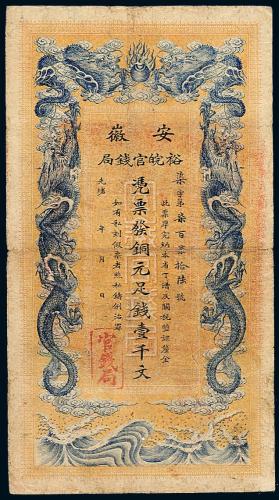 安徽
裕皖官錢局
柒字第柒百零拾陸號
此票準完納本省丁漕及關稅鹽課釐金
憑票發銅元足錢壹千文
如有私刻假票者照私鑄例治罪
光緒 年 月 日
官錢局